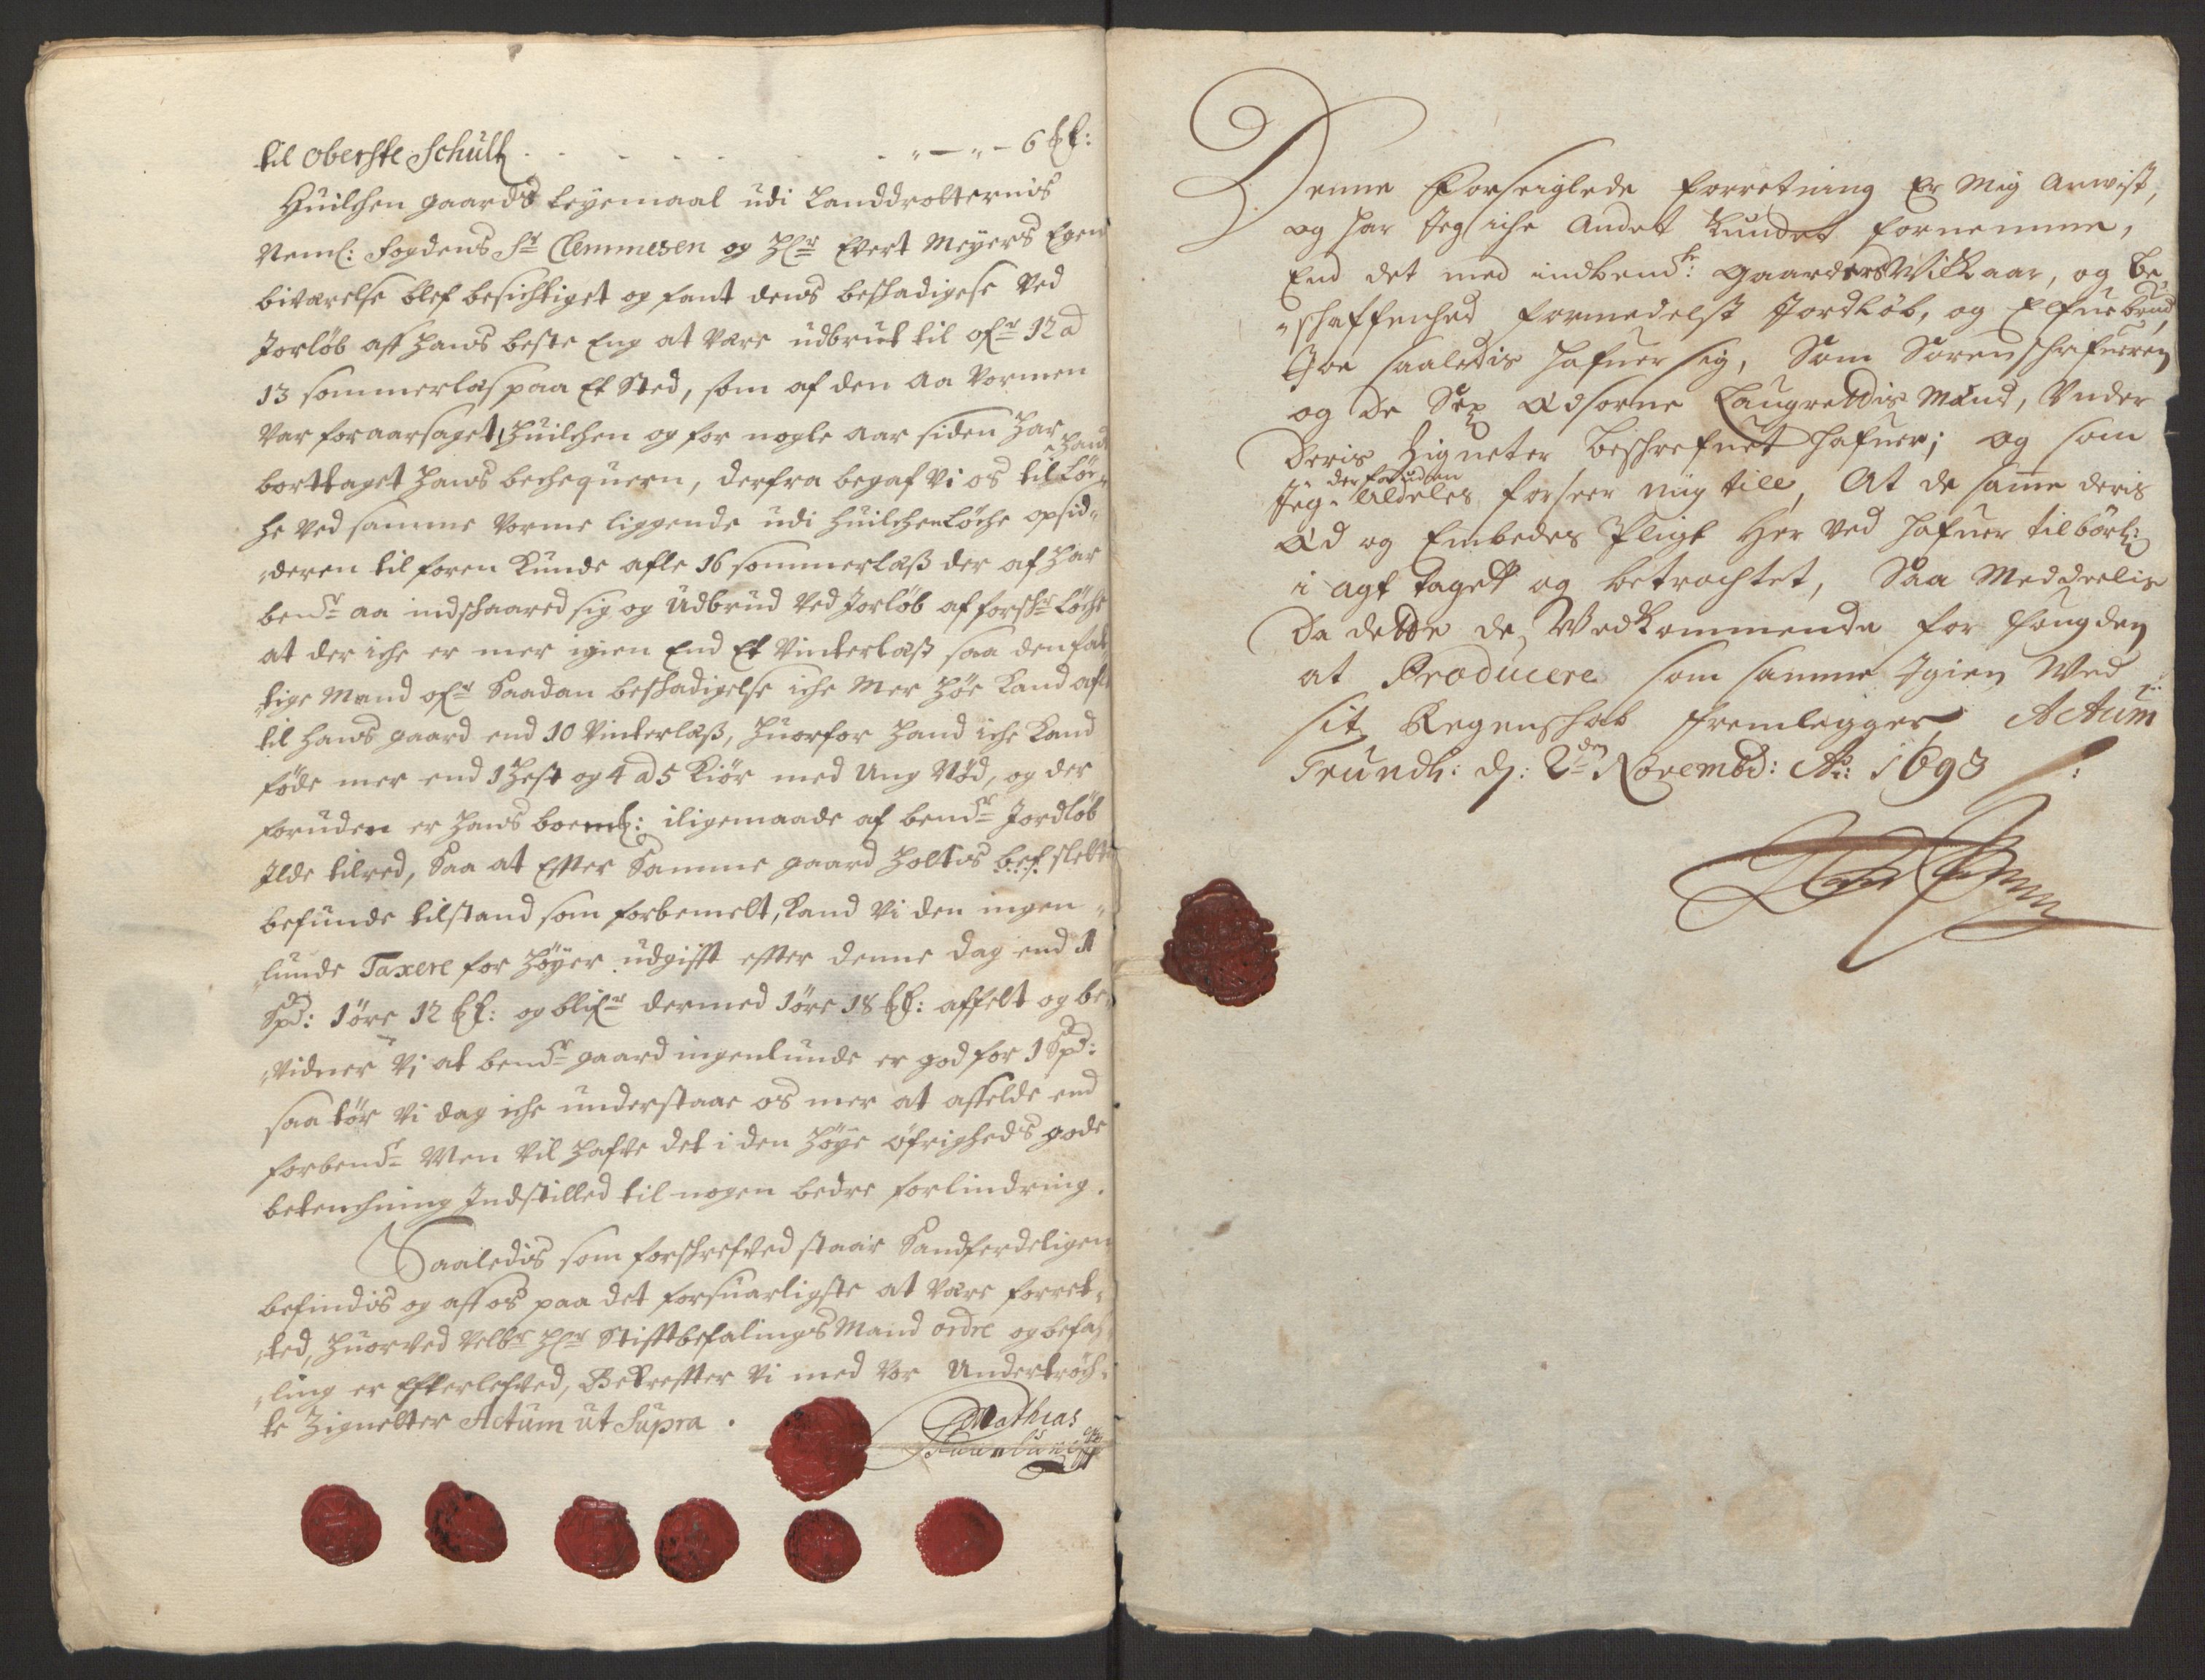 til Oberste Schultz . . . . . . . "—"— 6 
Huilchen gaards leyemaal udi Landdrotternis
Neml: Fogdens Sr Clemmesen og Hr Evert Meyers Egen
biværelse blef besichtiget og fant dens beskadigese ved
Jorløb aff hans beste Eng at være udbrut til ofr 12 a
13 sommerlas paa Et Sted, som af den Aa Vormen
var foraarsaget, huilchen og for nogle aar siden har
borttaget hans bechequern, derfra begaf vi os til Løc-
he ved samme Vorme liggende udi huilchen Løche opsid-
deren tilforen kunde afle 16 sommerlass der af har
bendr aa indskaared sig og udbrud ved Jorløb af forschr Løche
at der iche er mer igien End Et Vinterlass saa den fat-
tige Mand ofr Saadan beskadigelse iche Mer høe kand afle
til hans gaard end 10 Vinterlass, huorfor hand iche kand
føde mer end 1 hest og 4 a 5 kiør med Ung Nød, og der
foruden er hans boeml: iligemaade af bendr Jordløb
Ilde tilred, Saa at Efter Samme gaard holtis bes. slette
befunde tilstand som forbemelt, kand vi den ingen-
lunde Taxere for høyer udgifft efter denne dag end 1
Spd: 1 øre 12 og blifr dermed 1 øre 18 affelt og be-
vidner vi at bendr gaard ingenlunde er god for 1 Spd:
saa tør vi dag iche understaae os mer at affelde end
forbendr Men vil hafve det i den høye øfrigheds gode
betenchning Indstilled til nogen bedre forlindring.
Saaledis som forskrefved staar Sandferdeligen
befindis og aff os paa det forsuarligste at være forret-
ted, huorved velbr Hr Stifftbefalings Mand ordre og befa-
ling er Efterlefved, Bekreffter vi med vor Undertrøch-
te Zignetter Actum ut Supra.
Mathias
Denne Forseiglede forretning Er Mig Anvist,
og har Jeg iche Andet kundet fornemme,
End det med indbendr: gaarders Vilkaar, og be-
schaffenhed formedelst Jordløb, og Elfuebrud,
Joe saaledis hafuer sig, Som Sorenschrifueren
og De Sex Edsorne Laugrettis Mænd, Under
Deris Zigneter beschrefuet hafuer; og som
Jeg derforuden Aldeles forseer mig till, At de samme deris
Æd og Embedes Pligt Her ved hafuer tilbørl:
i agt taget og betrachtet, Saa Meddeelis
Da dette de Vedkommende for Fougden
at Producere som samme Igien Ved
sit Regenschab fremlegger, Actum
Trundh: d: 2den Novembd: Ao: 1693